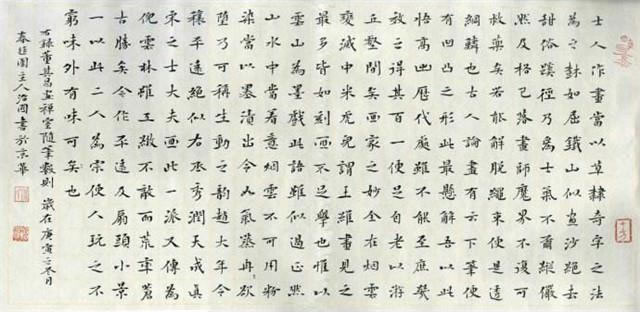 士人作畫當以草隸奇字之法
為之樹如屈鐵山似畫沙絕去
甜俗蹊徑乃為士氣不爾縱儼
然及格已落畫師魔界不復可
救藥矣若能解脫繩束便是透
網鱗也古人論畫有云下筆便
有凹凸之形此最懸解吾以此
悟高出歷代處雖不能至庶幾
效之得其百一便足自老以游
丘壑間矣畫家之妙全在烟雲
變滅中米虎兒謂王維畫見之
最多皆如刻畫不足學也惟以
雲山為墨戲此語雖似過正然
山水中當着意烟雲不可用粉
染當以墨漬出令如氣蒸冉欲
墮乃可稱生動之韻趙大年令
穰平遠絕似右丞秀潤天成真
宋之士大夫畫此一派又傳為
倪雲林雖工緻不敵而荒率蒼
古勝矣今作平遠及扇頭小景
一以此二人為宗使人玩之不
窮味外有味可矣也
右錄董其昌畫禪室隨筆數則 歲在庚寅之冬月
園主人治國書於京華